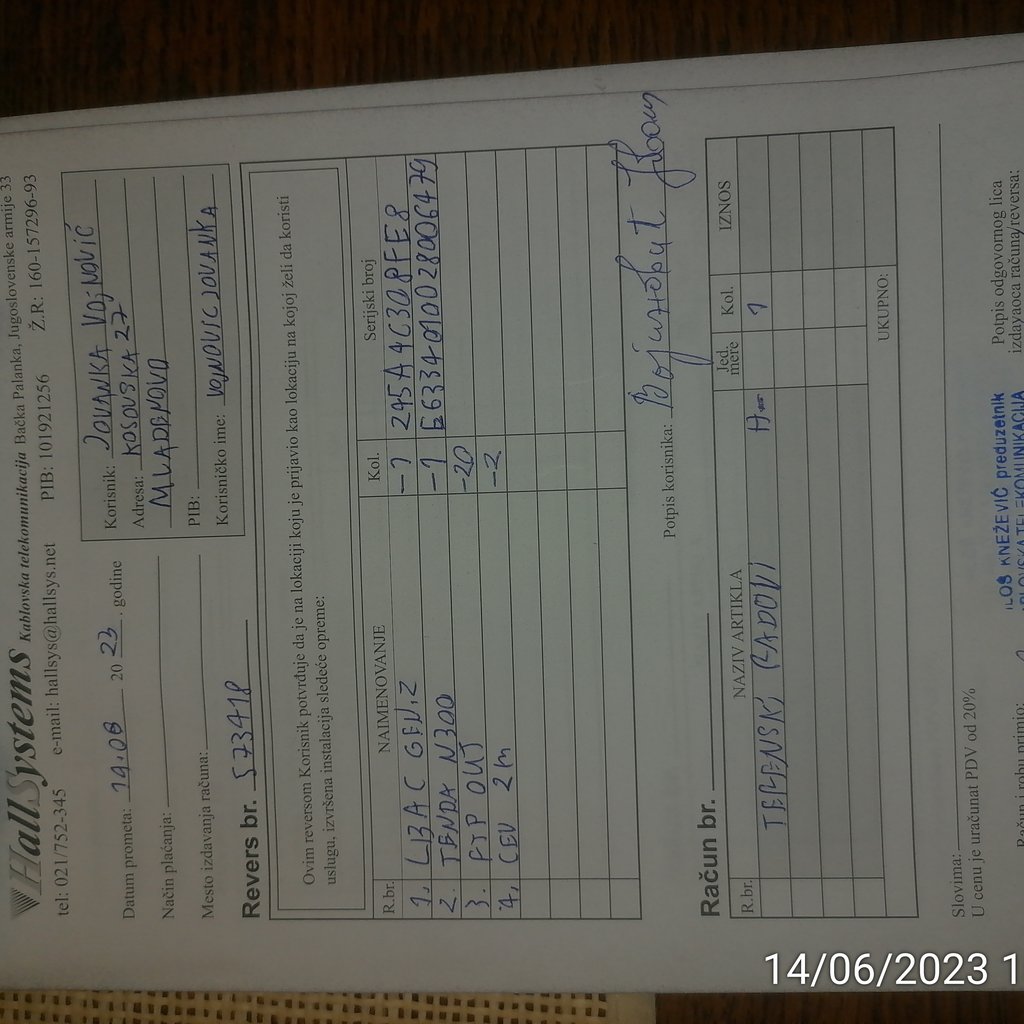 HallSystems Kablovska telekomunikacija Bačka Palanka, Jugoslovenske armije 33
tel: 021/752-345 e-mail: hallsys@hallsys.net PIB: 101921256 Ž.R: 160-157296-93
Datum prometa: 14.06 2023. godine
Način plaćanja:
Mesto izdavanja računa:
Korisnik: JOVANKA VOJNOVIĆ
Adresa: KOSOVSKA 27
MLADENOVO
PIB:
Korisničko ime: VOJNOVICJOVANKA
Revers br. 573418
Ovim reversom Korisnik potvrđuje da je na lokaciji koju je prijavio kao lokaciju na kojoj želi da koristi
uslugu, izvršena instalacija sledeće opreme:
R.br. NAIMENOVANJE Kol. Serijski broj
1. LBAC GEN:2 -1 245A4C308FE8
2. TENDA N300 -1 E6334010028006479
3. FTP OUT -20
4. CEV 2m -2
Potpis korisnika:
Račun br.
R.br. NAZIV ARTIKLA Jed. mere Kol. IZNOS
TERENSKI RADOVI 1
UKUPNO:
Slovima:
U cenu je uračunat PDV od 20%
Račun i robu primio:
Potpis odgovornog lica
izdavaoca računa/reversa:
KNEŽEVIĆ preduzetnik
TELEKOMUNIKACIJA
14/06/2023 1